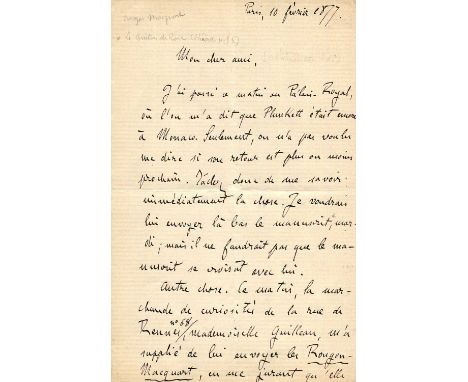 Paris, 10 février 1877.
Mon cher ami,
J'ai passé ce matin au Palais-Royal,
où l'on m'a dit que Plunkett était encore
à Monaco. Seulement, on n'a pas voulu
me dire si son retour est plus ou moins
prochain. Tâchez donc de me savoir
immédiatement la chose. Je voudrais
lui envoyer là bas le manuscrit, mar-
di; mais il ne faudrait pas que le ma-
nuscrit se croisât avec lui.
Autre chose. Ce matin, la mar-
chande de curiosités de la rue de
Rennes, n° 68, mademoiselle Guilleau, m'a
supplié de lui envoyer les Rougon-
Macquart, en me jurant qu'elle